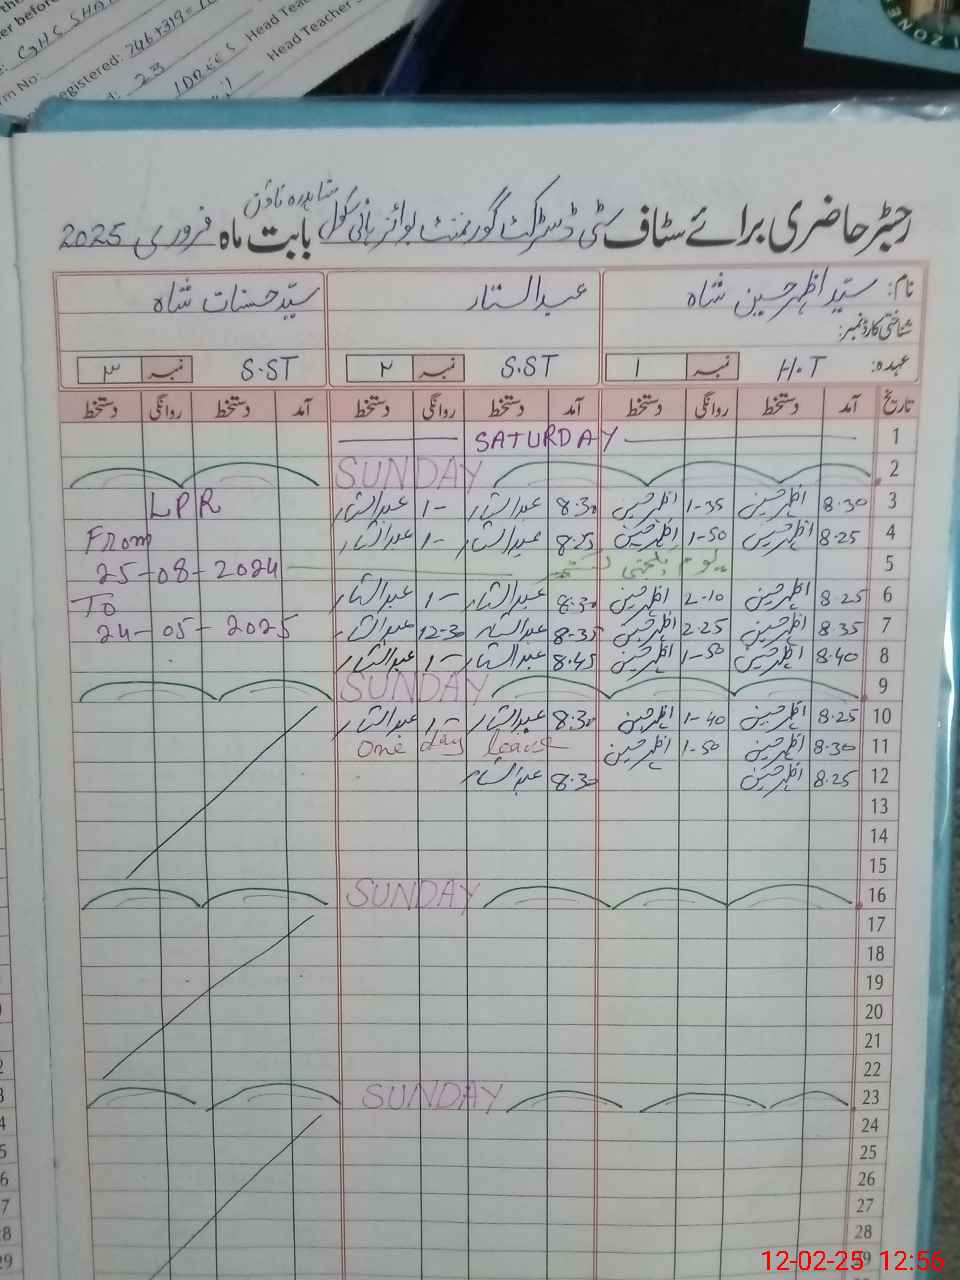 GHS SHA
rm No:
egistered: 746+319=
23
IDREES Head Teac
Head Teacher
ZONE
رجسٹر حاضری برائے سٹاف سٹی ڈسٹرکٹ گورنمنٹ بوائز ہائی سکول شاہدرہ ٹاؤن بابت ماہ فروری 2025
نام: سیّد اظہر حسین شاہ عبدالستار سیّد حسنات شاہ
شناختی کارڈ نمبر:
عہدہ: H.T نمبر 1 S.ST نمبر ۲ S.ST نمبر ۳
تاریخ آمد دستخط روانگی دستخط آمد دستخط روانگی دستخط آمد دستخط روانگی دستخط
1 SATURDAY
2 SUNDAY
3 8.30 اظہر حسین 1-35 اظہر حسین 8.30 عبدالستار 1- عبدالستار LPR
4 8.25 اظہر حسین 1-50 اظہر حسین 8.25 عبدالستار 1- عبدالستار From
5 یوم یکجہتی کشمیر 25-08-2024
6 8.25 اظہر حسین 2-10 اظہر حسین 8.30 عبدالستار 1- عبدالستار To
7 8.35 اظہر حسین 2.25 اظہر حسین 8.35 عبدالستار 12-30 عبدالستار 24-05-2025
8 8.40 اظہر حسین 1-50 اظہر حسین 8.45 عبدالستار 1- عبدالستار
9 SUNDAY
10 8.25 اظہر حسین 1-40 اظہر حسین 8.30 عبدالستار 1- عبدالستار
11 8.30 اظہر حسین 1-50 اظہر حسین One day leave
12 8.25 اظہر حسین 8.30 عبدالستار
13
14
15
16 SUNDAY
17
18
19
20
21
22
23 SUNDAY
24
25
26
27
28
29
12-02-25 12:56